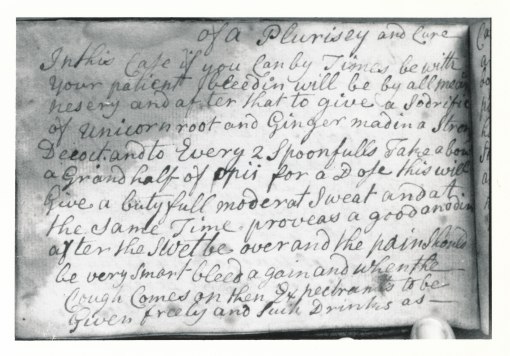 of a Plurisey and Cure
In this Case if you Can by Times be with
your patient bleedin will be by all mean
nesery and after that to give a Sodrific
of unicorn root and Ginger mad in a Stron
Decoct. and to Every 2 Spoonfulls Take abou
a Grand half of opii for a Dose this will
Give a butyfull moderat Sweat and at
the Same Time proveas a good anodin
after the Swet be over and the pain Should
be very Smart bleed again and when the
Cough Comes on then Expectrants to be
Given freely and Such Drinks as